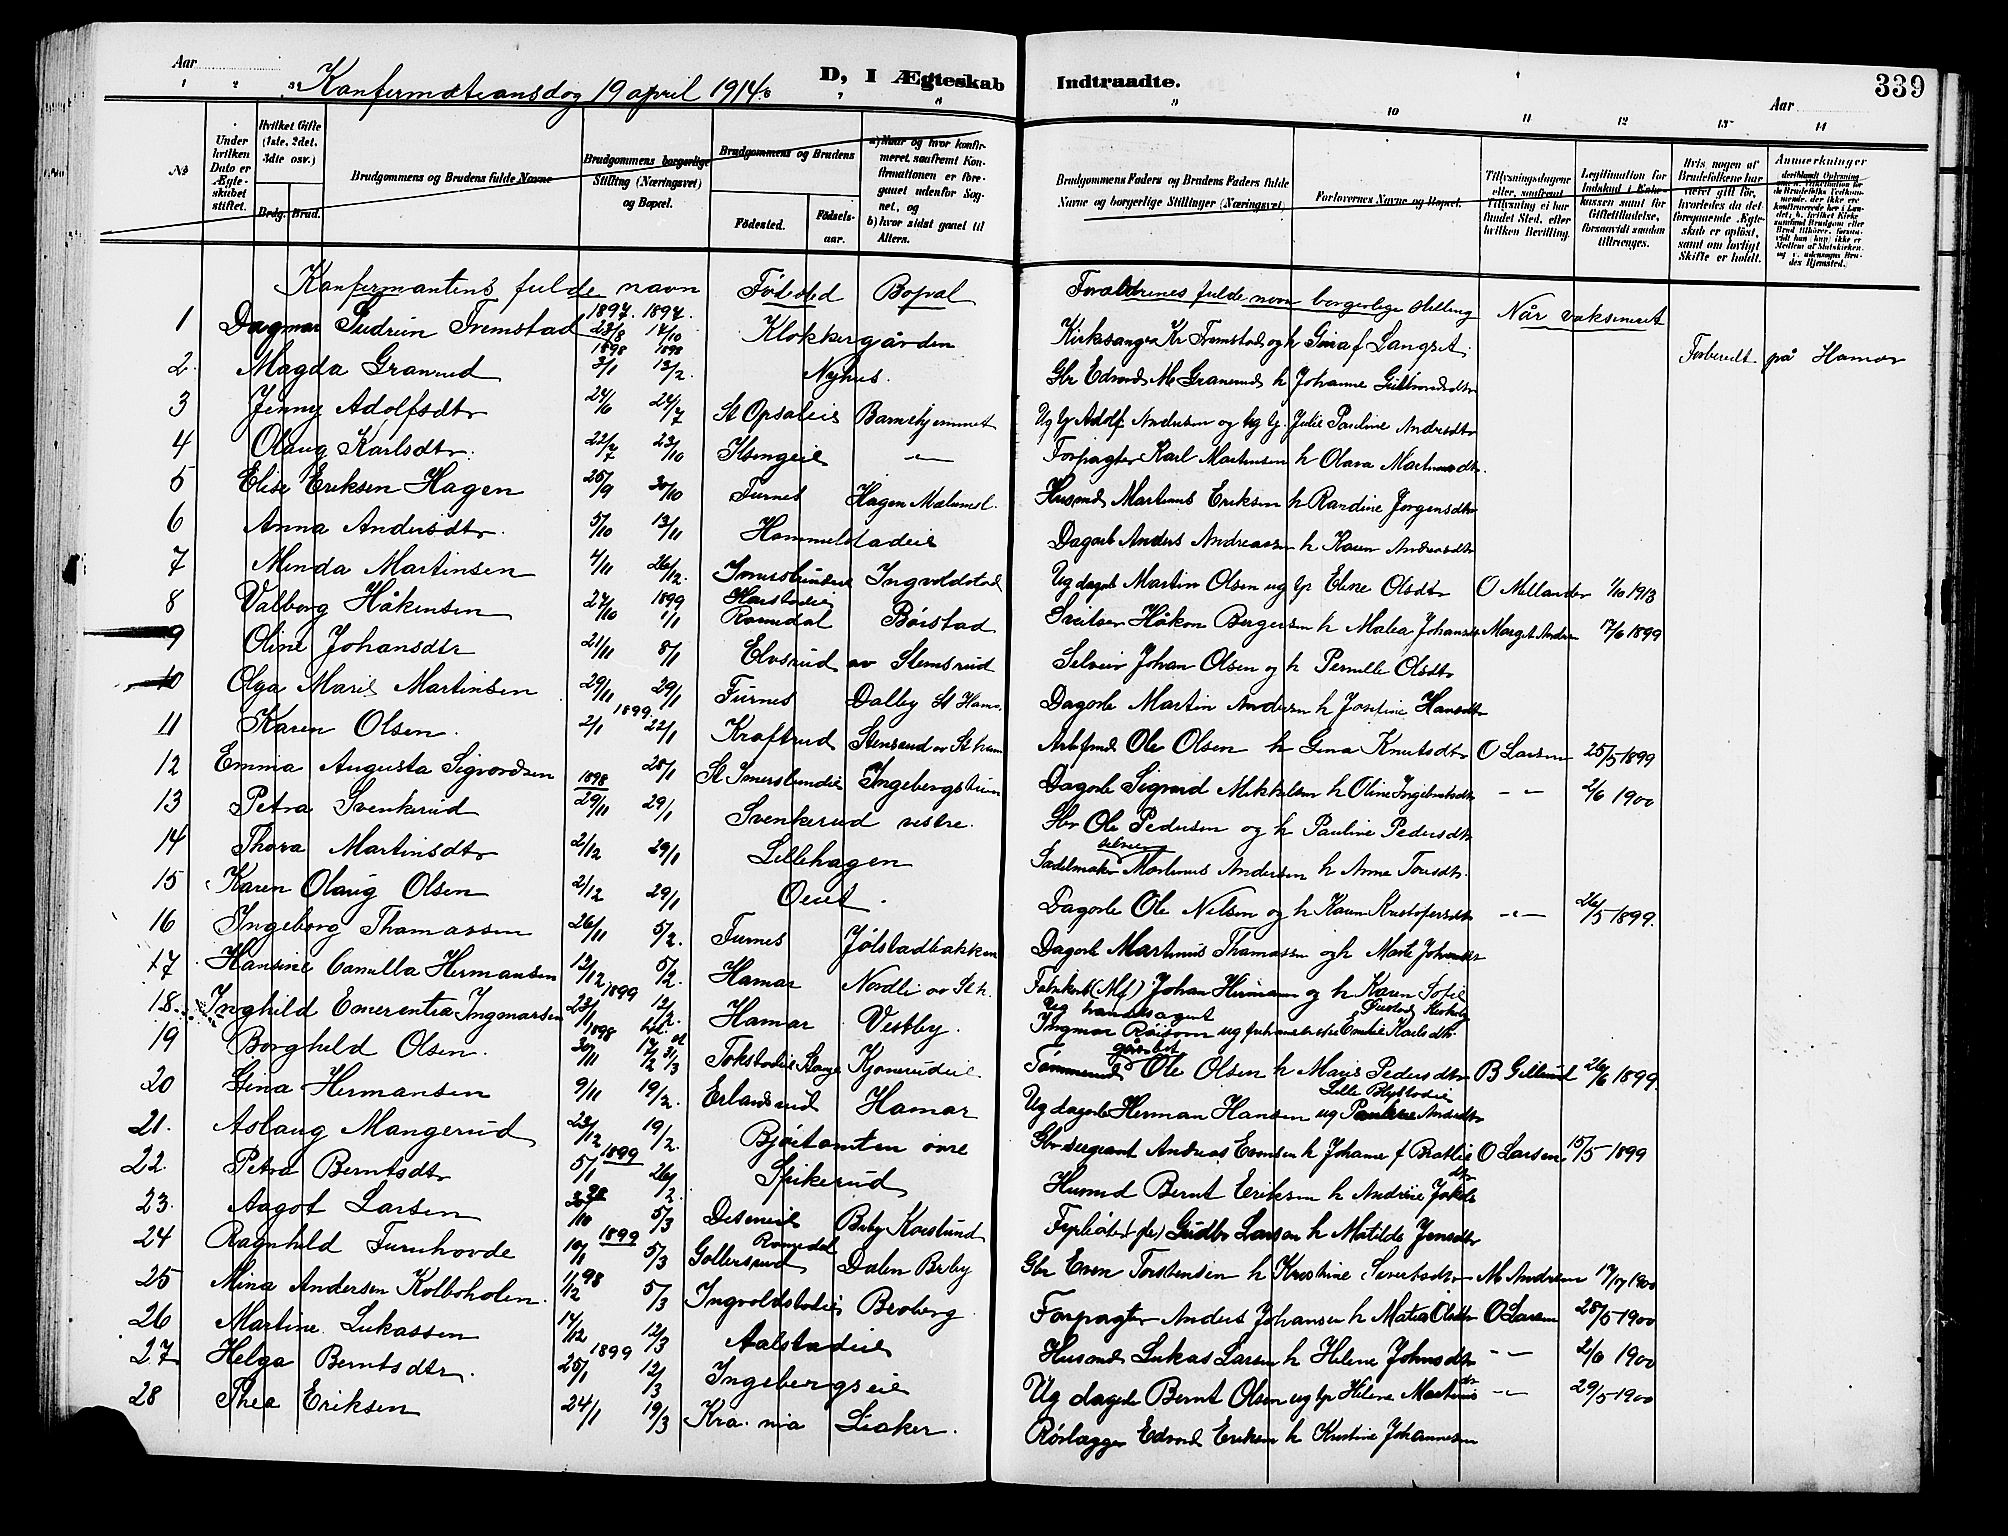 Aar
Konfirmationsdag 19 april 1914.
D, I Ægteskab Indtraadte.
Aar
339
1 2 7 8 9 10 11 12 13 14
No
Under hvilken Dato er Ægteskabet stiftet.
Hvilket Gifte (1ste, 2det, 3die osv.)
Brdg. Brud.
Brudgommens og Brudens fulde Navne
Brudgommens borgerlige Stilling (Næringsvei) og Bopæl.
Brudgommens og Brudens
Fødested.
Fødselsaar.
a) Naar og hvor konfirmeret, saafremt Konfirmationen er foregaaet udenfor Sognet, og
b) hvor sidst gaaet til Alters.
Brudgommens Faders og Brudens Faders fulde Navne og borgerlige Stillinger (Næringsvei)
Forlovernes Navne og Bopæl.
Tillysningsdagene eller, saafremt Tillysning ei har fundet Sted, efter hvilken Bevilling.
Legitimation for Indskud i Enkekassen samt for Giftetilladelse, forsaavidt saadan tiltrænges.
Hvis nogen af Brudefolkene har været gift før, hvorledes da det foregaaende Ægteskab er opløst, samt om lovligt Skifte er holdt.
Anmærkninger
Konfermantens fulde navn Føtsted Bopæl Forældrenes fulde navn borgerlige stilling Når vaksineret
1 Dagmar Gudrun Fremstad 1897. 23/8 1897. 17/10 Klokkergården Kirksanger Kr Fremstad og h Gina f Langset.
2. Magda Granrud 1898 3/1 1898 13/2. Nyhus. Gbr Edvard M Granerud h Johanne Gulbrandsdtr Forberedt på Hamar
3 Jenny Adolfsdtr 24/6 24/7 St Opsaleie Barnehjemmet Ug Adolf Andersen og Ug Julie Pauline Andersdtr
4 Olaug Karlsdtr. 22/7 23/10 Ilsengeie -"- Forpagter Karl Martinsen h Olava Martinsdtr.
5 Elise Eriksen Hagen 25/9 30/10 Furnes Hagen Mælumsl. Husmd Martinus Eriksen h Randine Jørgensdtr
6 Anna Andersdtr. 5/10 13/11 Hommelstadeie Dagarb Anders Andreassen h Karen Andreasdtr
7 Minda Martinsen 4/11 26/12. Imerslundeie Ingvoldstad Ug dagarb Martin Olsen ug tp Eline Olsdtr O Mellander 1/10 1913
8 Valborg Håkensen 27/10 1899 1/1 Harstadeie Romedal Børstad Sveitser Håkon Bergersen h Malea Johanses Marget Ander 17/6 1899
9 Oline Johansdtr 21/11 8/1 Elvsrud av Stemsrud Selveier Johan Olsen og h Pernille Olsdtr
10 Olga Marie Martinsen 29/11 29/1 Furnes Dalby St Ham. Dagarb Martin Andersen h Josefine Hansdtr
11 Karen Olsen. 1899. 2/1 22/1 Kraftrud Stensrud av St ham Arbfmd Ole Olsen h Gina Knutsdtr O Larsen 25/5 1899
12 Emma Augusta Sigvardsen 28/1 St Imerslundeie Ingebergstuen Dagarb Sigvard Mikkelsen h Oline Ingebretsdtr -"- 2/6 1900
13 Petra Svenkerud 1898 29/11 29/1 Svenkerud vestre. Gbr Ole Pedersen og h Pauline Pedersdtr
14 Thora Martinsdtr 2/12 29/1 Lillehagen Sadelmaker selveier Martinus Andersen h Anne Toresdtr.
15 Karen Olaug Olsen 2/12 29/1 Oeiet. Dagarb Ole Nilsen og h Karen Kristofersdtr -"- 26/5 1899.
16 Ingeborg Thomassen 26/11 5/2. Furnes Jølstadbakken Dagarb Martinus Thomassen og h Marte Johansdtr
17 Hansine Camilla Hermansen 13/12 5/2. Hamar Nordli av St h. Fabrikarb (Mf) Johan Herman og h Karen Sofie
18. Inghild Emerentia Ingmarsen 1899 23/1 12/2. Hamar Vestby. Ug handelsagent Ingmar Røisom ug Emilie Karlsdtr
19 Borghild Olsen. 1898 30/11 17/2 Tokstadeie Stange Kjonerudeie Tømmermd gårdbr Ole Olsen h Maris Pedersdtr B Gillund 26/6 1899.
20 Gina Hermansen 9/11 19/2. Erlandsrud Hamar Ug dagarb Herman Hansen ug Pauline Andersdtr Lille Blystadeie
21. Aslaug Mangerud 23/12 19/2. Bjørtomten øvre Gbr sergeant Andreas Evensen h Johanne f Bratlie O Larsen 15/5 1899
22. Petra Berntsdtr 1899 5/1 26/2. Spikerud Husmd Bernt Eriksen h Andrine Jakobsdtr
23. Aagot Larsen 98 /10 5/3 Deseneie Berby Korslund Fyrbøter Gudbr Larsen h Matilde Jensdtr
24 Ragnhild Furuhovde 1899 10/1 5/3 Gollersrud Romedal Dalen Berby Gbr Even Torstensen h Kristine Sivertsdtr M Andersen 17/7 1900
25 Mina Andersen Kolboholen. 1/12 98 5/3 Ingvoldstadeie Broberg. Forpagter Anders Johansen h Matea Olsdtr O Larsen 28/5 1900
26 Martine Lukassen 17/12 12/3 Aalstadeie Husmd Lukas Larsen h Helene Johnsdtr -"- 2/6 1900
27 Helga Berntsdtr. 1899 25/1 12/3 Ingebergseie Ug dagarb Bernt Olsen ug tp Helene Martinsdtr -"- 29/5 1900
28 Thea Eriksen 24/1 19/3 Kra.nia Liaker. Rørlægger Edvard Eriksen h Kristine Johannesen